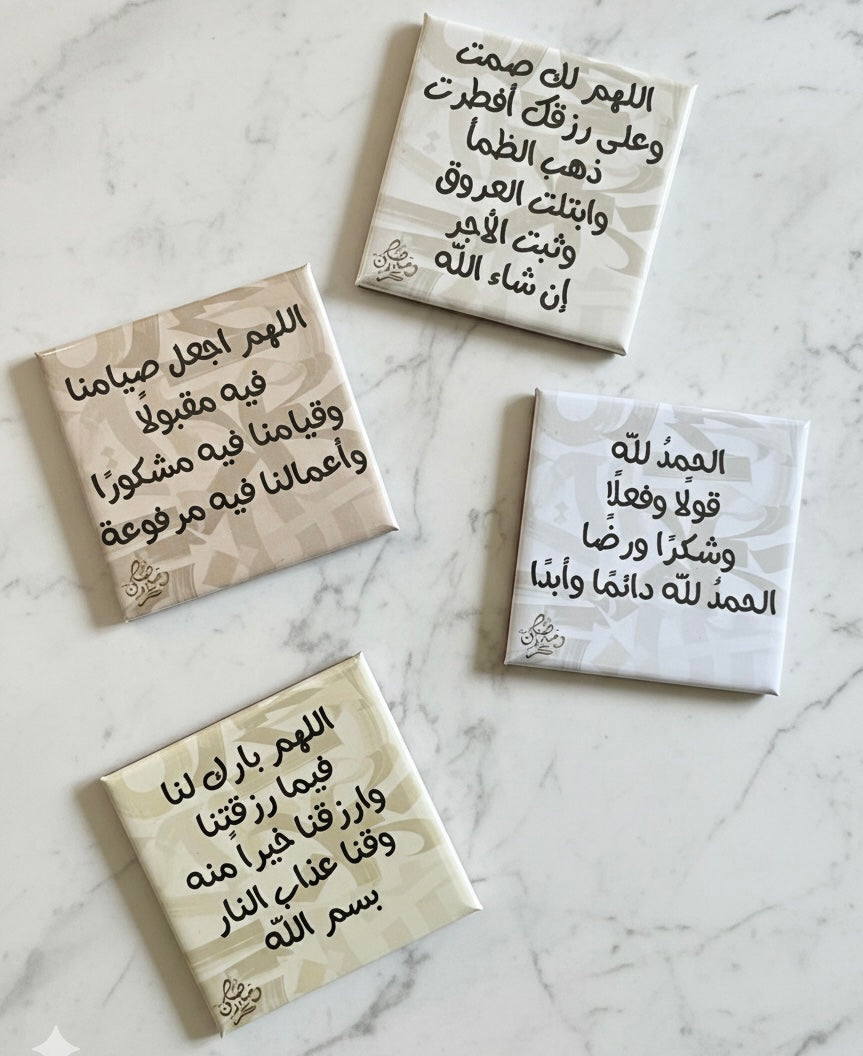 اللهم لك صمت
وعلى رزقك أفطرت
ذهب الظمأ
وابتلت العروق
وثبت الأجر
إن شاء الله
اللهم اجعل صيامنا
فيه مقبولًا
وقيامنا فيه مشكورًا
وأعمالنا فيه مرفوعة
الحمدُ لله
قولًا وفعلًا
وشكرًا ورضًا
الحمدُ لله دائمًا وأبدًا
اللهم بارك لنا
فيما رزقتنا
وارزقنا خيرا منه
وقنا عذاب النار
بسم الله